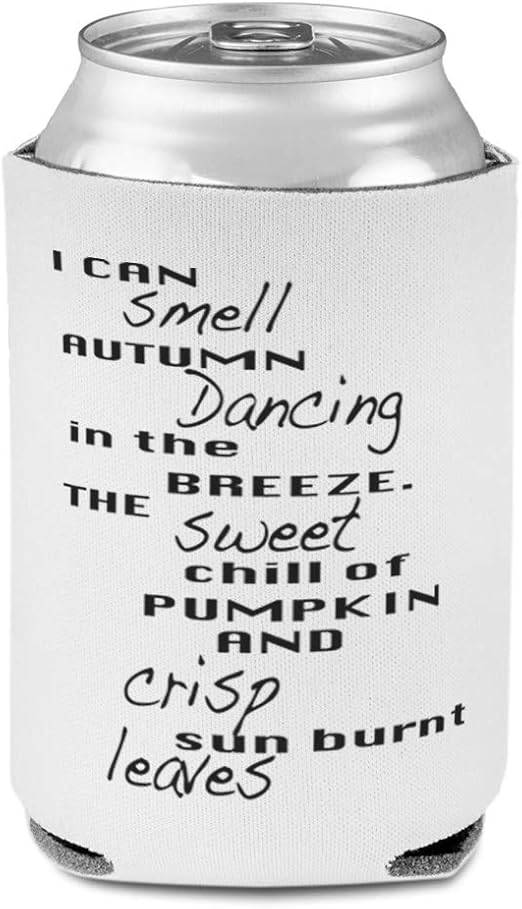 I CAN
smell
AUTUMN
Dancing
in the
BREEZE.
THE sweet
chill of
PUMPKIN
AND
crisp
sun burnt
leaves